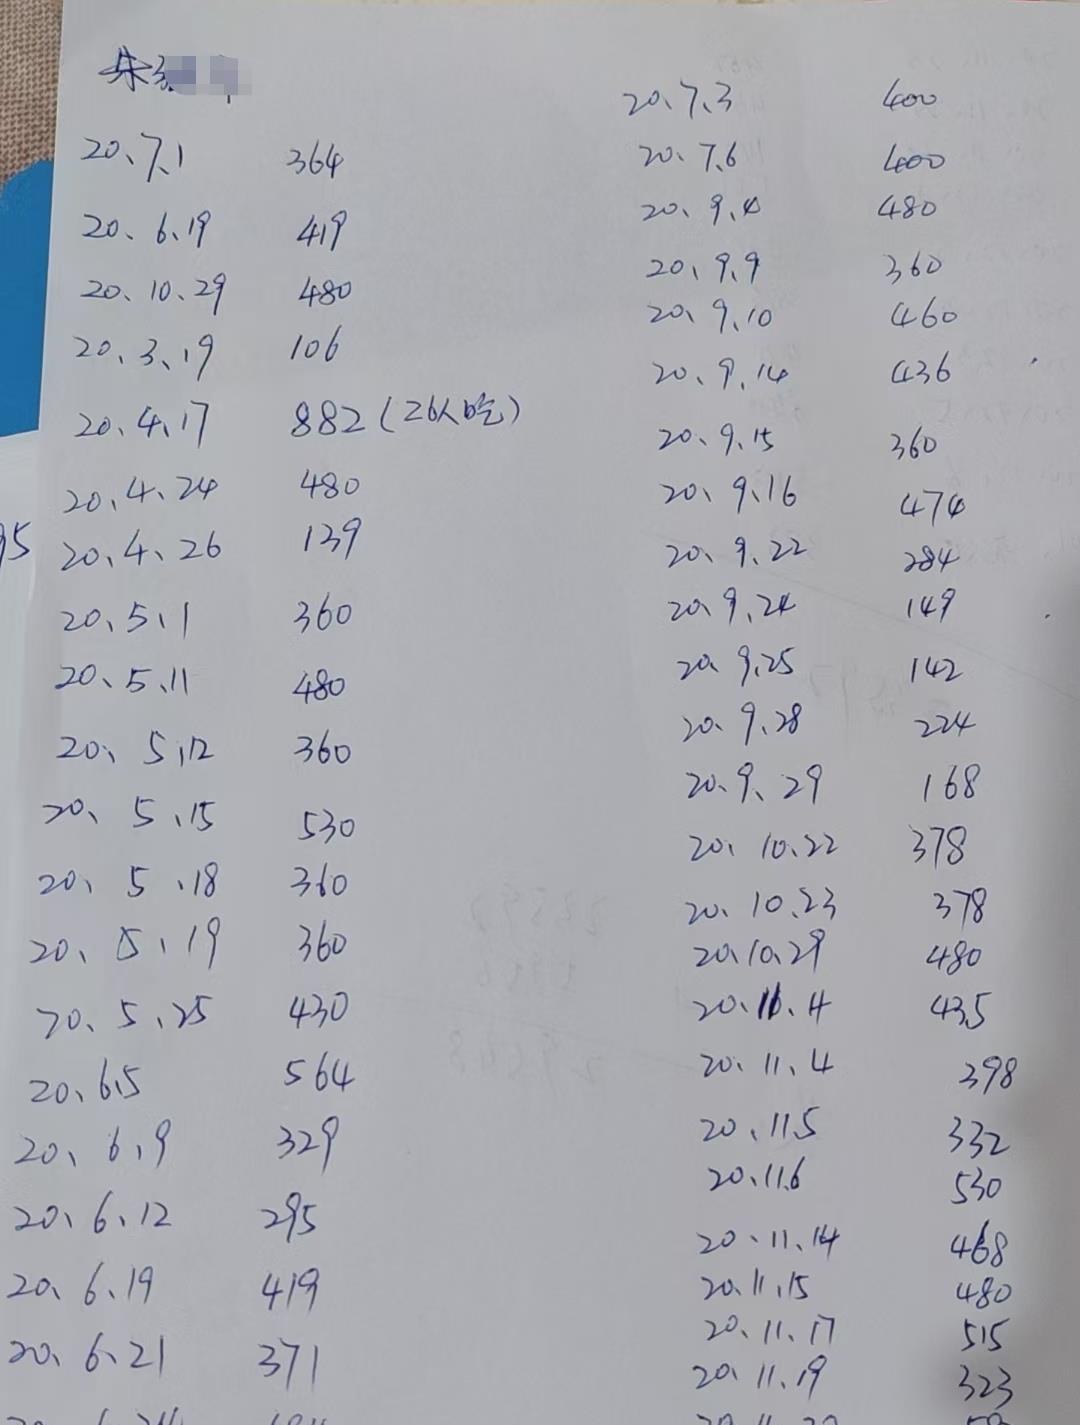 朱
20、7、1 364
20、6、19 419
20、10、29 480
20、3、19 106
20、4、17 882（26人吃）
20、4、24 480
20、4、26 139
20、5、1 360
20、5、11 480
20、5、12 360
20、5、15 530
20、5、18 360
20、5、19 360
20、5、25 430
20、6、5 564
20、6、9 329
20、6、12 295
20、6、19 419
20、6、21 371
20、7、3 400
20、7、6 400
20、9、4 480
20、9、9 360
20、9、10 460
20、9、14 436
20、9、15 360
20、9、16 474
20、9、22 284
20、9、24 149
20、9、25 142
20、9、28 224
20、9、29 168
20、10、22 378
20、10、23 378
20、10、29 480
20、11、4 435
20、11、4 398
20、11、5 332
20、11、6 530
20、11、14 468
20、11、15 480
20、11、17 515
20、11、19 323